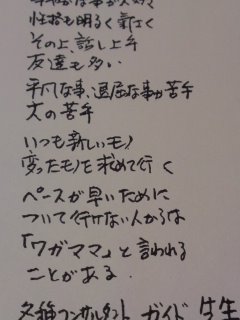 性格も明るく気さく
その上、話し上手
友達も多い
平凡な事、退屈な事が苦手
大の苦手
いつも新しいモノ
変ったモノを求めて行く
ペースが早いために
ついて行けない人からは
「ワガママ」と言われる
ことがある。
コンサルタント ガイド